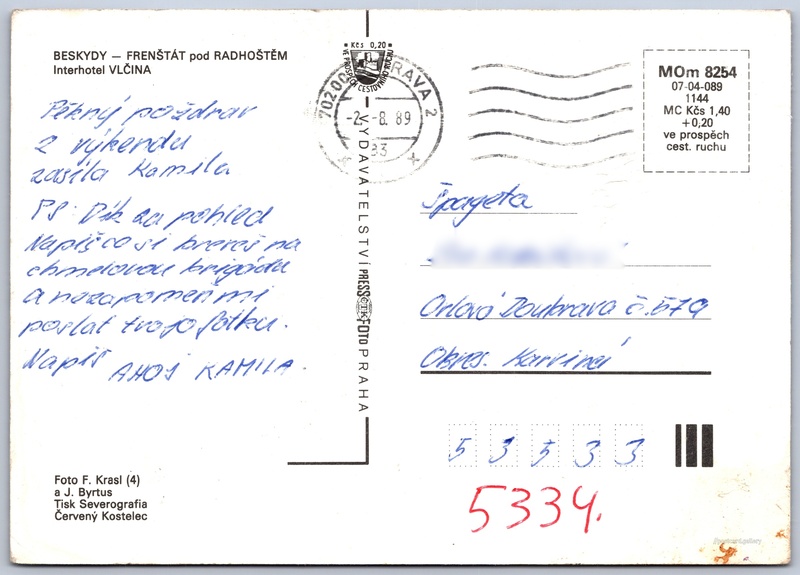 BESKYDY — FRENŠTÁT pod RADHOŠTĚM
Interhotel VLČINA
Pěkný pozdrav
z výkendu
zasíla Kamila
PS: Dík za pohled
Napiš co si bereš na
chmelovou brigádu
a nezapomeň mi
poslat tvojo fotku.
Napiš AHOJ KAMILA.
Foto F. Krasl (4)
a J. Byrtus
Tisk Severografia
Červený Kostelec
Kčs 0,20
VE PROSPĚCH CESTOVNÍHO RUCHU
VYDAVATELSTVÍ PRESSFOTO PRAHA
ČTK
70200 RAVA 2
-2.-8.89
MOm 8254
07-04-089
1144
MC Kčs 1,40
+0,20
ve prospěch
cest. ruchu
Špageta
Orlová Doubrava č.579
Okres. Karviná
5 3 5 3 3
5334.